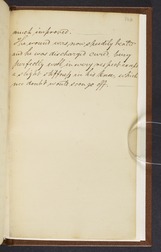 much improved.
The wound was now speedily heal'd
and he was discharged cured being
perfectly well in every respect except
a slight stiffness in his knee, which
no doubt would soon go off.